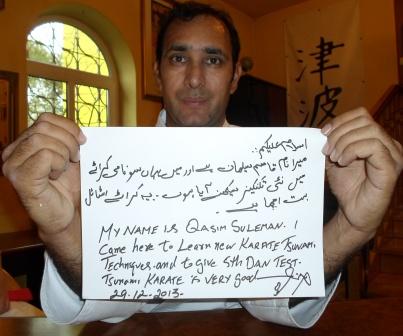 津
波
اسلام علیکم۔۔
میرا نام قاسم سلیمان ہے اور میں یہاں سونامی کراٹے
میں نئی تکنیکز سیکھنے آیا ہوں ۔ یہ کراٹے اسٹائل
بہت اچھا ہے۔
MY NAME IS QASIM SULEMAN. I
Came here to Learn new KARATE TSUNAMI
Techniques. and to give 5th DAN TEST.
TSUNAMI KARATE is VERY good
29.12.2013.